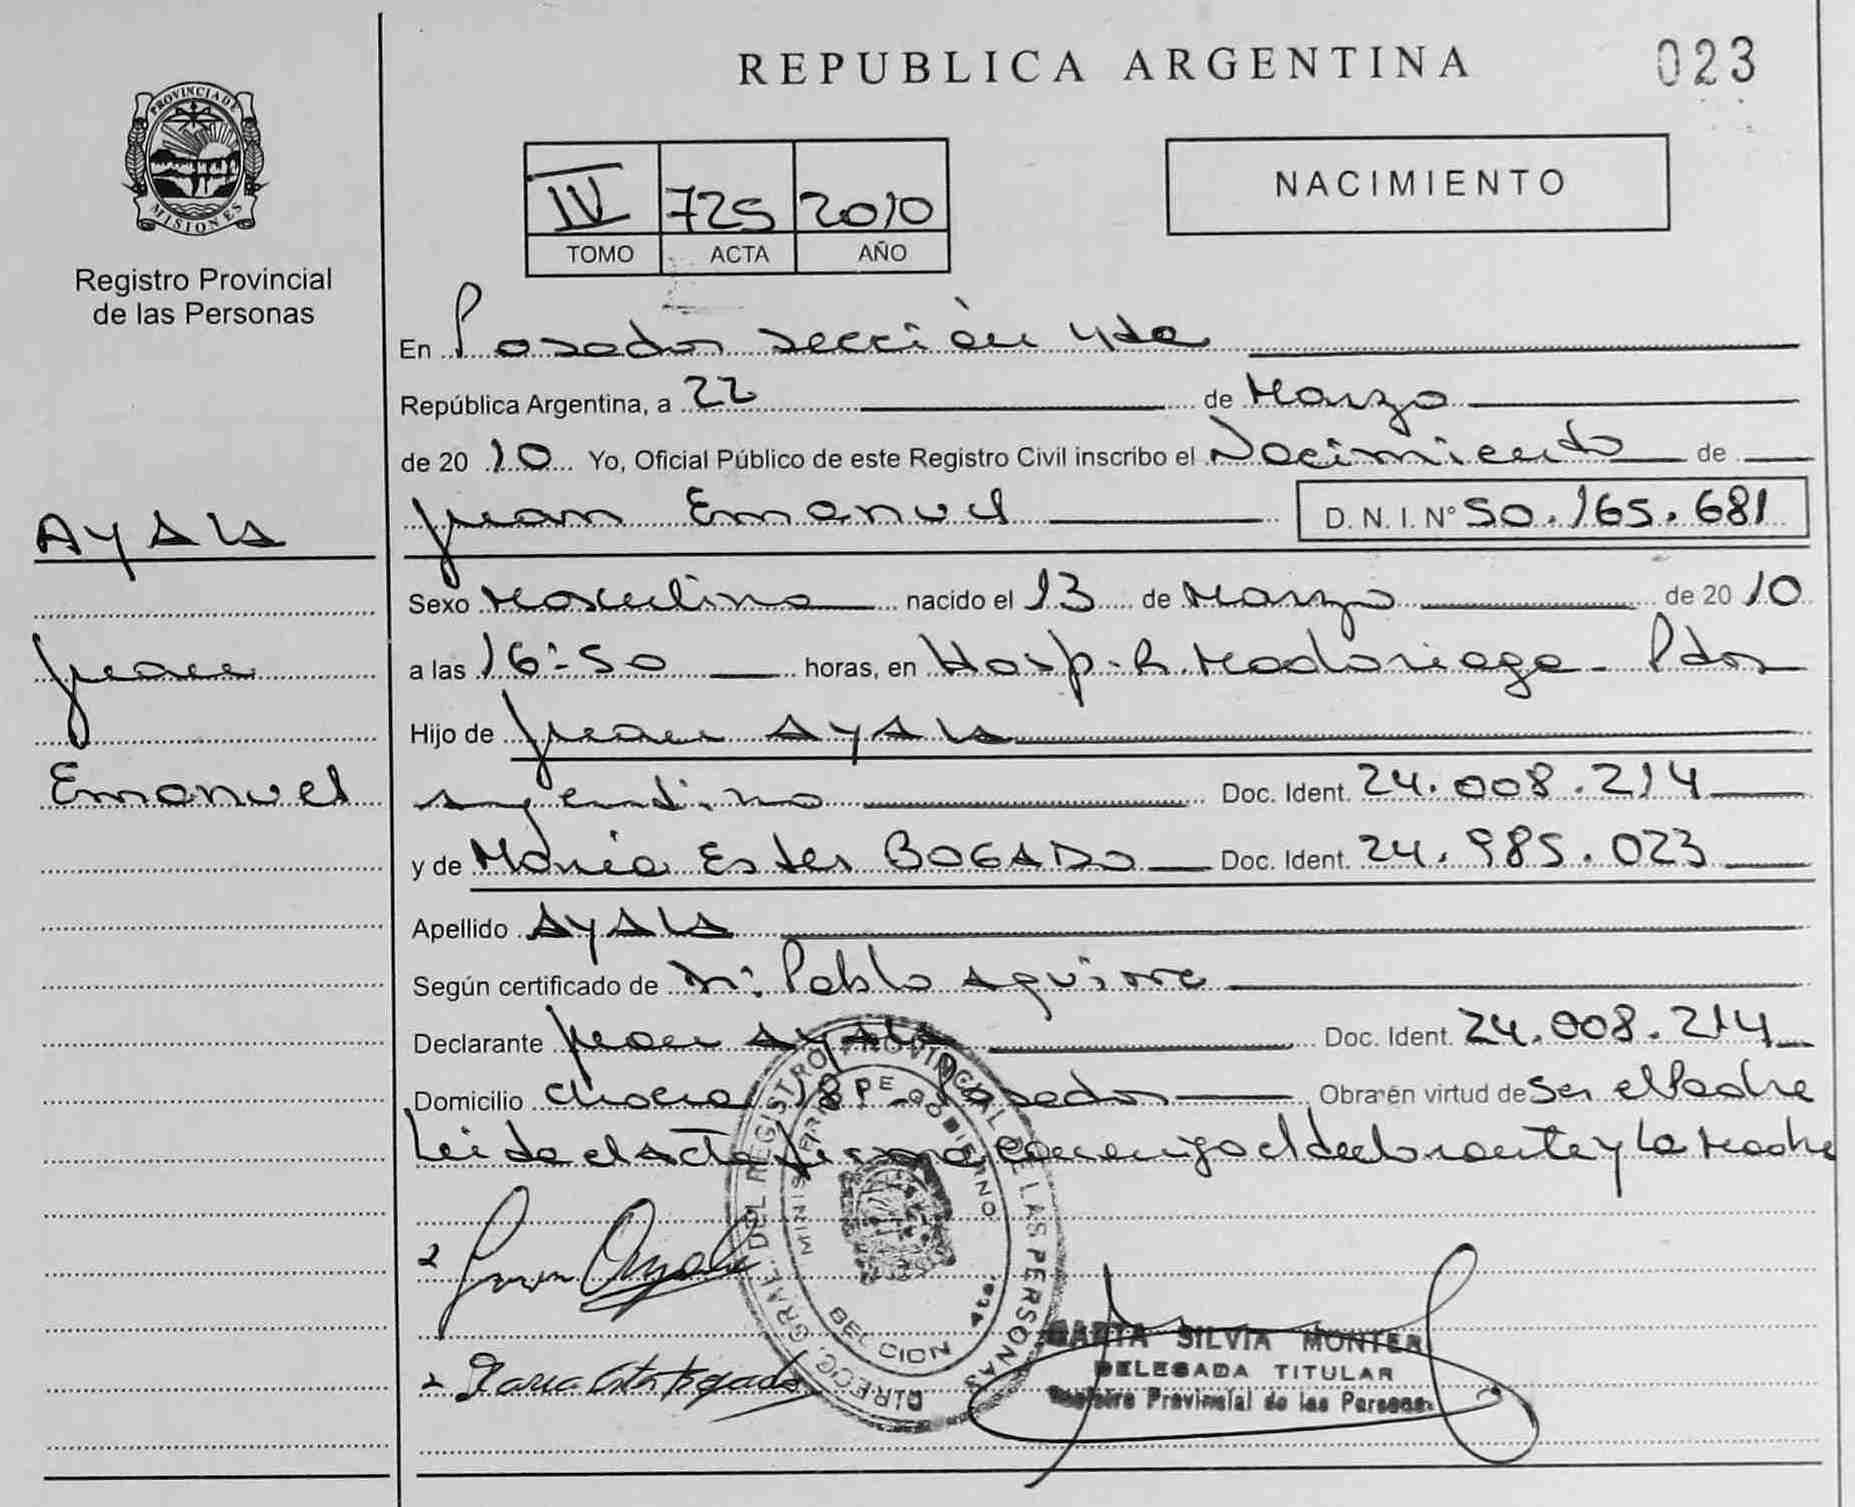 REPUBLICA ARGENTINA
023
PROVINCIA DE MISIONES
Registro Provincial
de las Personas
IV 725 2010
TOMO ACTA AÑO
NACIMIENTO
En Posadas sección 4ta
República Argentina, a 22 de Marzo
de 20 10 Yo, Oficial Público de este Registro Civil inscribo el Nacimiento de
Juan Emanuel D. N. I. N° 50.165.681
AYALA
Juan
Emanuel
Sexo Masculino nacido el 13 de Marzo de 20 10
a las 16:50 horas, en Hosp. R. Madariaga - Pdas
Hijo de Juan AYALA
Doc. Ident. 24.008.214
y de María Ester BOGADO Doc. Ident. 24.985.023
Apellido AYALA
Según certificado de Pablo Aguirre
Declarante Juan AYALA Doc. Ident. 24.008.214
Domicilio chacra 181 - Posadas Obra en virtud de Ser el Padre
Leida el acta firma conmigo el declarante y la Madre
DIRECC. GRAL. DEL REGISTRO PROVINCIAL DE LAS PERSONAS
MINISTERIO DE GOBIERNO
4ta.
Juan Ayala
SILVIA MONTER
DELEGADA TITULAR
Registro Provincial de las Personas